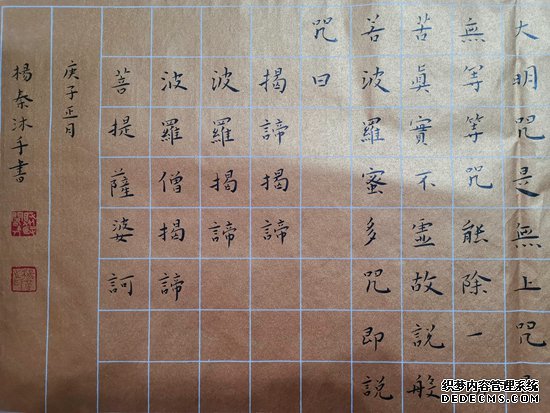 大明咒是無上咒
無等等咒能除一
苦眞實不虛故說般
若波羅蜜多咒即說
咒曰
揭諦揭諦
波羅揭諦
波羅僧揭諦
菩提薩婆訶
庚子正月
楊秦沐手書
织梦内容管理系统
DEDECMS.COM